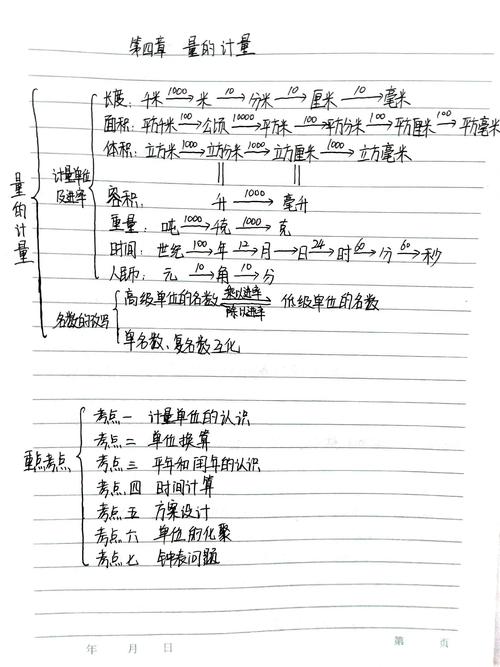 第四章 量的计量
量的计量
计量单位及进率
长度: 千米 1000→ 米 10→ 分米 10→ 厘米 10→ 毫米
面积: 平方千米 100→ 公顷 10000→ 平方米 100→ 平方分米 100→ 平方厘米 100→ 平方毫米
体积: 立方米 1000→ 立方分米 1000→ 立方厘米 1000→ 立方毫米
‖ ‖
容积: 升 1000→ 毫升
重量: 吨 1000→ 千克 1000→ 克
时间: 世纪 100→ 年 12→ 月 → 日 24→ 时 60→ 分 60→ 秒
人民币: 元 10→ 角 10→ 分
名数的改写
高级单位的名数 乘以进率 ⇄ 除以进率 低级单位的名数
单名数、复名数互化
重点考点
考点一 计量单位的认识
考点二 单位换算
考点三 平年和闰年的认识
考点四 时间计算
考点五 方案设计
考点六 单位的化聚
考点七 钟表问题
年 月 日 第 页